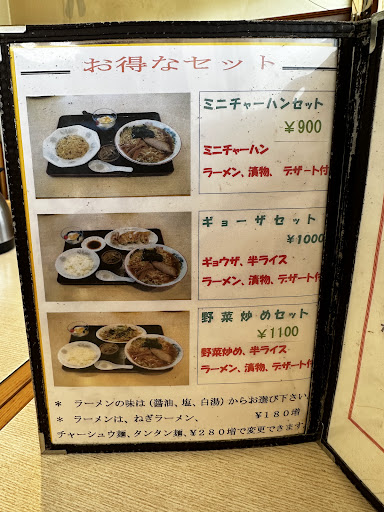 お得なセット
ミニチャーハンセット
￥900
ミニチャーハン
ラーメン、漬物、デザート付
ギョーザセット
￥1000
ギョウザ、半ライス
ラーメン、漬物、デザート付
野菜炒めセット
￥1100
野菜炒め、半ライス
ラーメン、漬物、デザート付
＊ ラーメンの味は（醤油、塩、白湯）からお選び下さい
＊ ラーメンは、ねぎラーメン、 ￥１８０増
チャーシュウ麺、タンタン麺、￥２８０増で変更できます